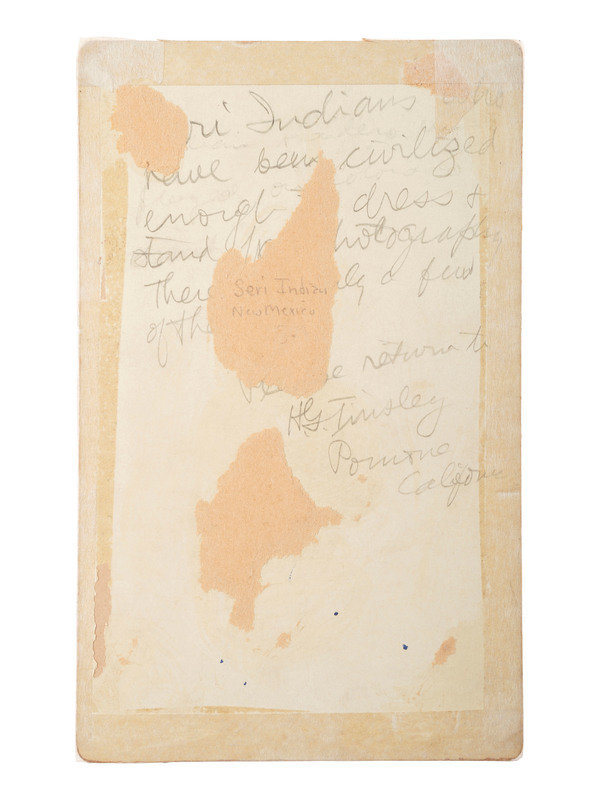 ri Indians
have been civilized
enough dress &
stand hotography
There ly a few
of the
Seri Indian
New Mexico
e return to
H.G. Tinsley
Pomona
Californ